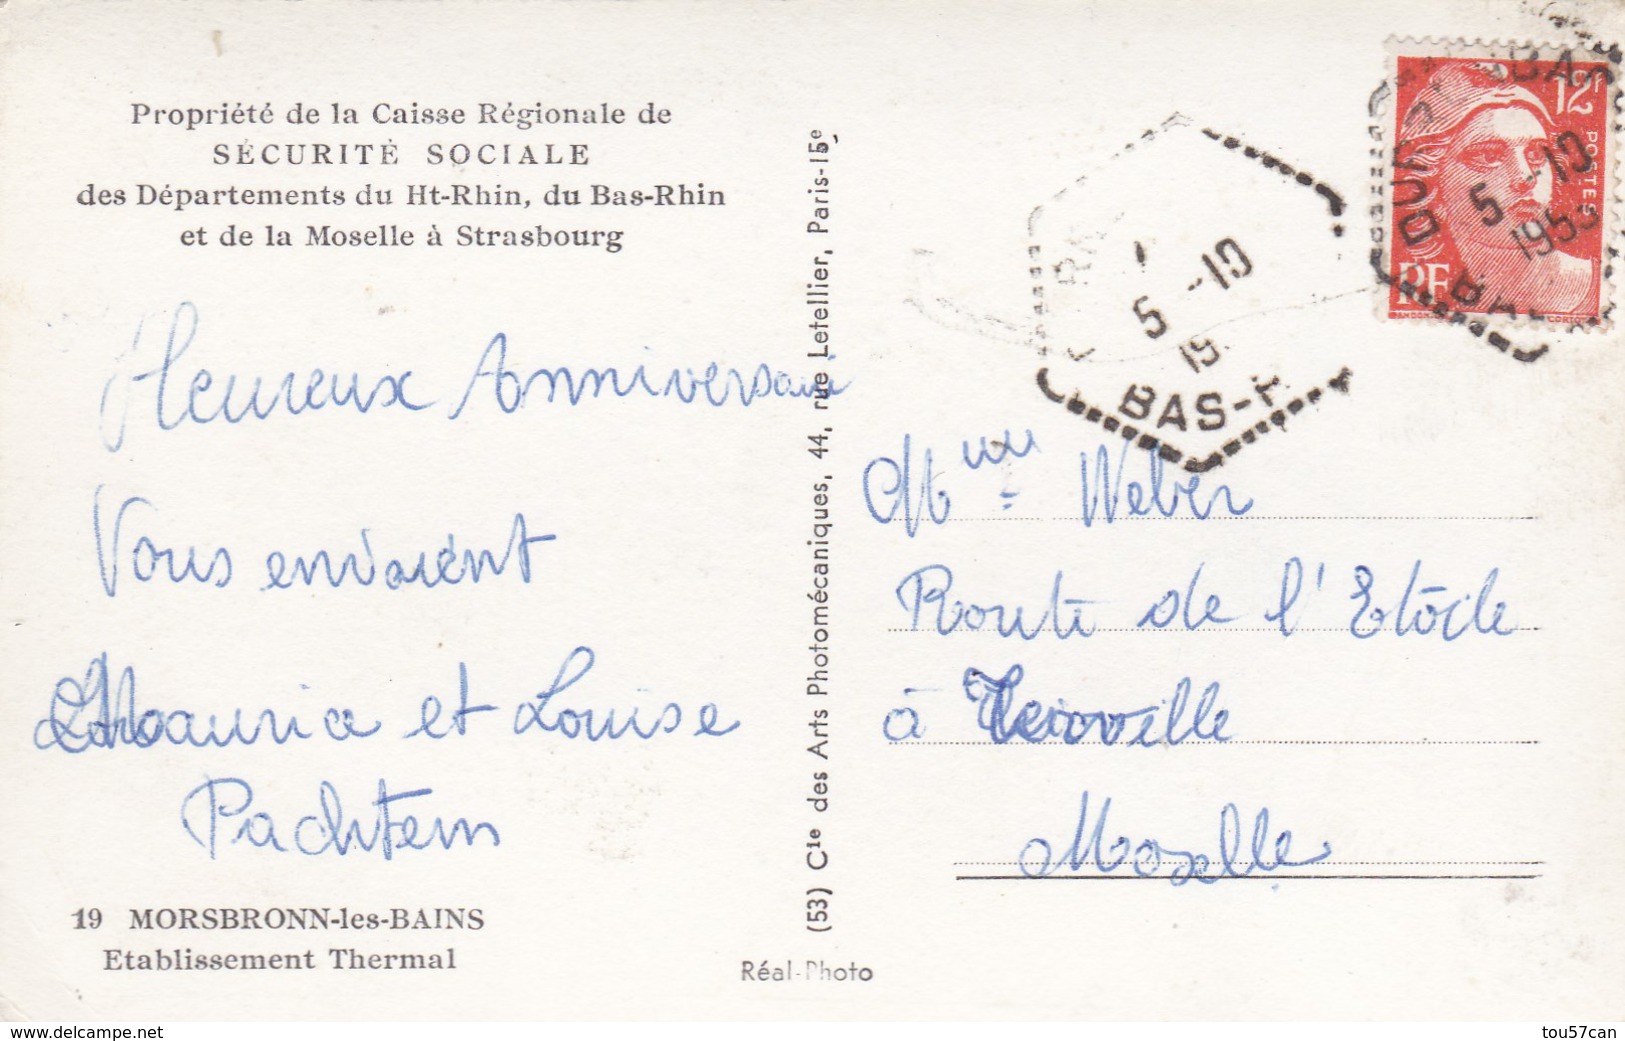 Propriété de la Caisse Régionale de
SÉCURITÉ SOCIALE
des Départements du Ht-Rhin, du Bas-Rhin
et de la Moselle à Strasbourg
Heureux Anniversaire
Vous envoient
Maurice et Louise
Pachtem
19 MORSBRONN-les-BAINS
Etablissement Thermal
(53) Cie des Arts Photomécaniques, 44, rue Letellier, Paris-15e
Réal-Photo
5 -10
19
BAS-R
12F
POSTES
RF
5 -10
1953
Mme Weber
Route de l'Etoile
à Terville
Moselle
www.delcampe.net
tou57can